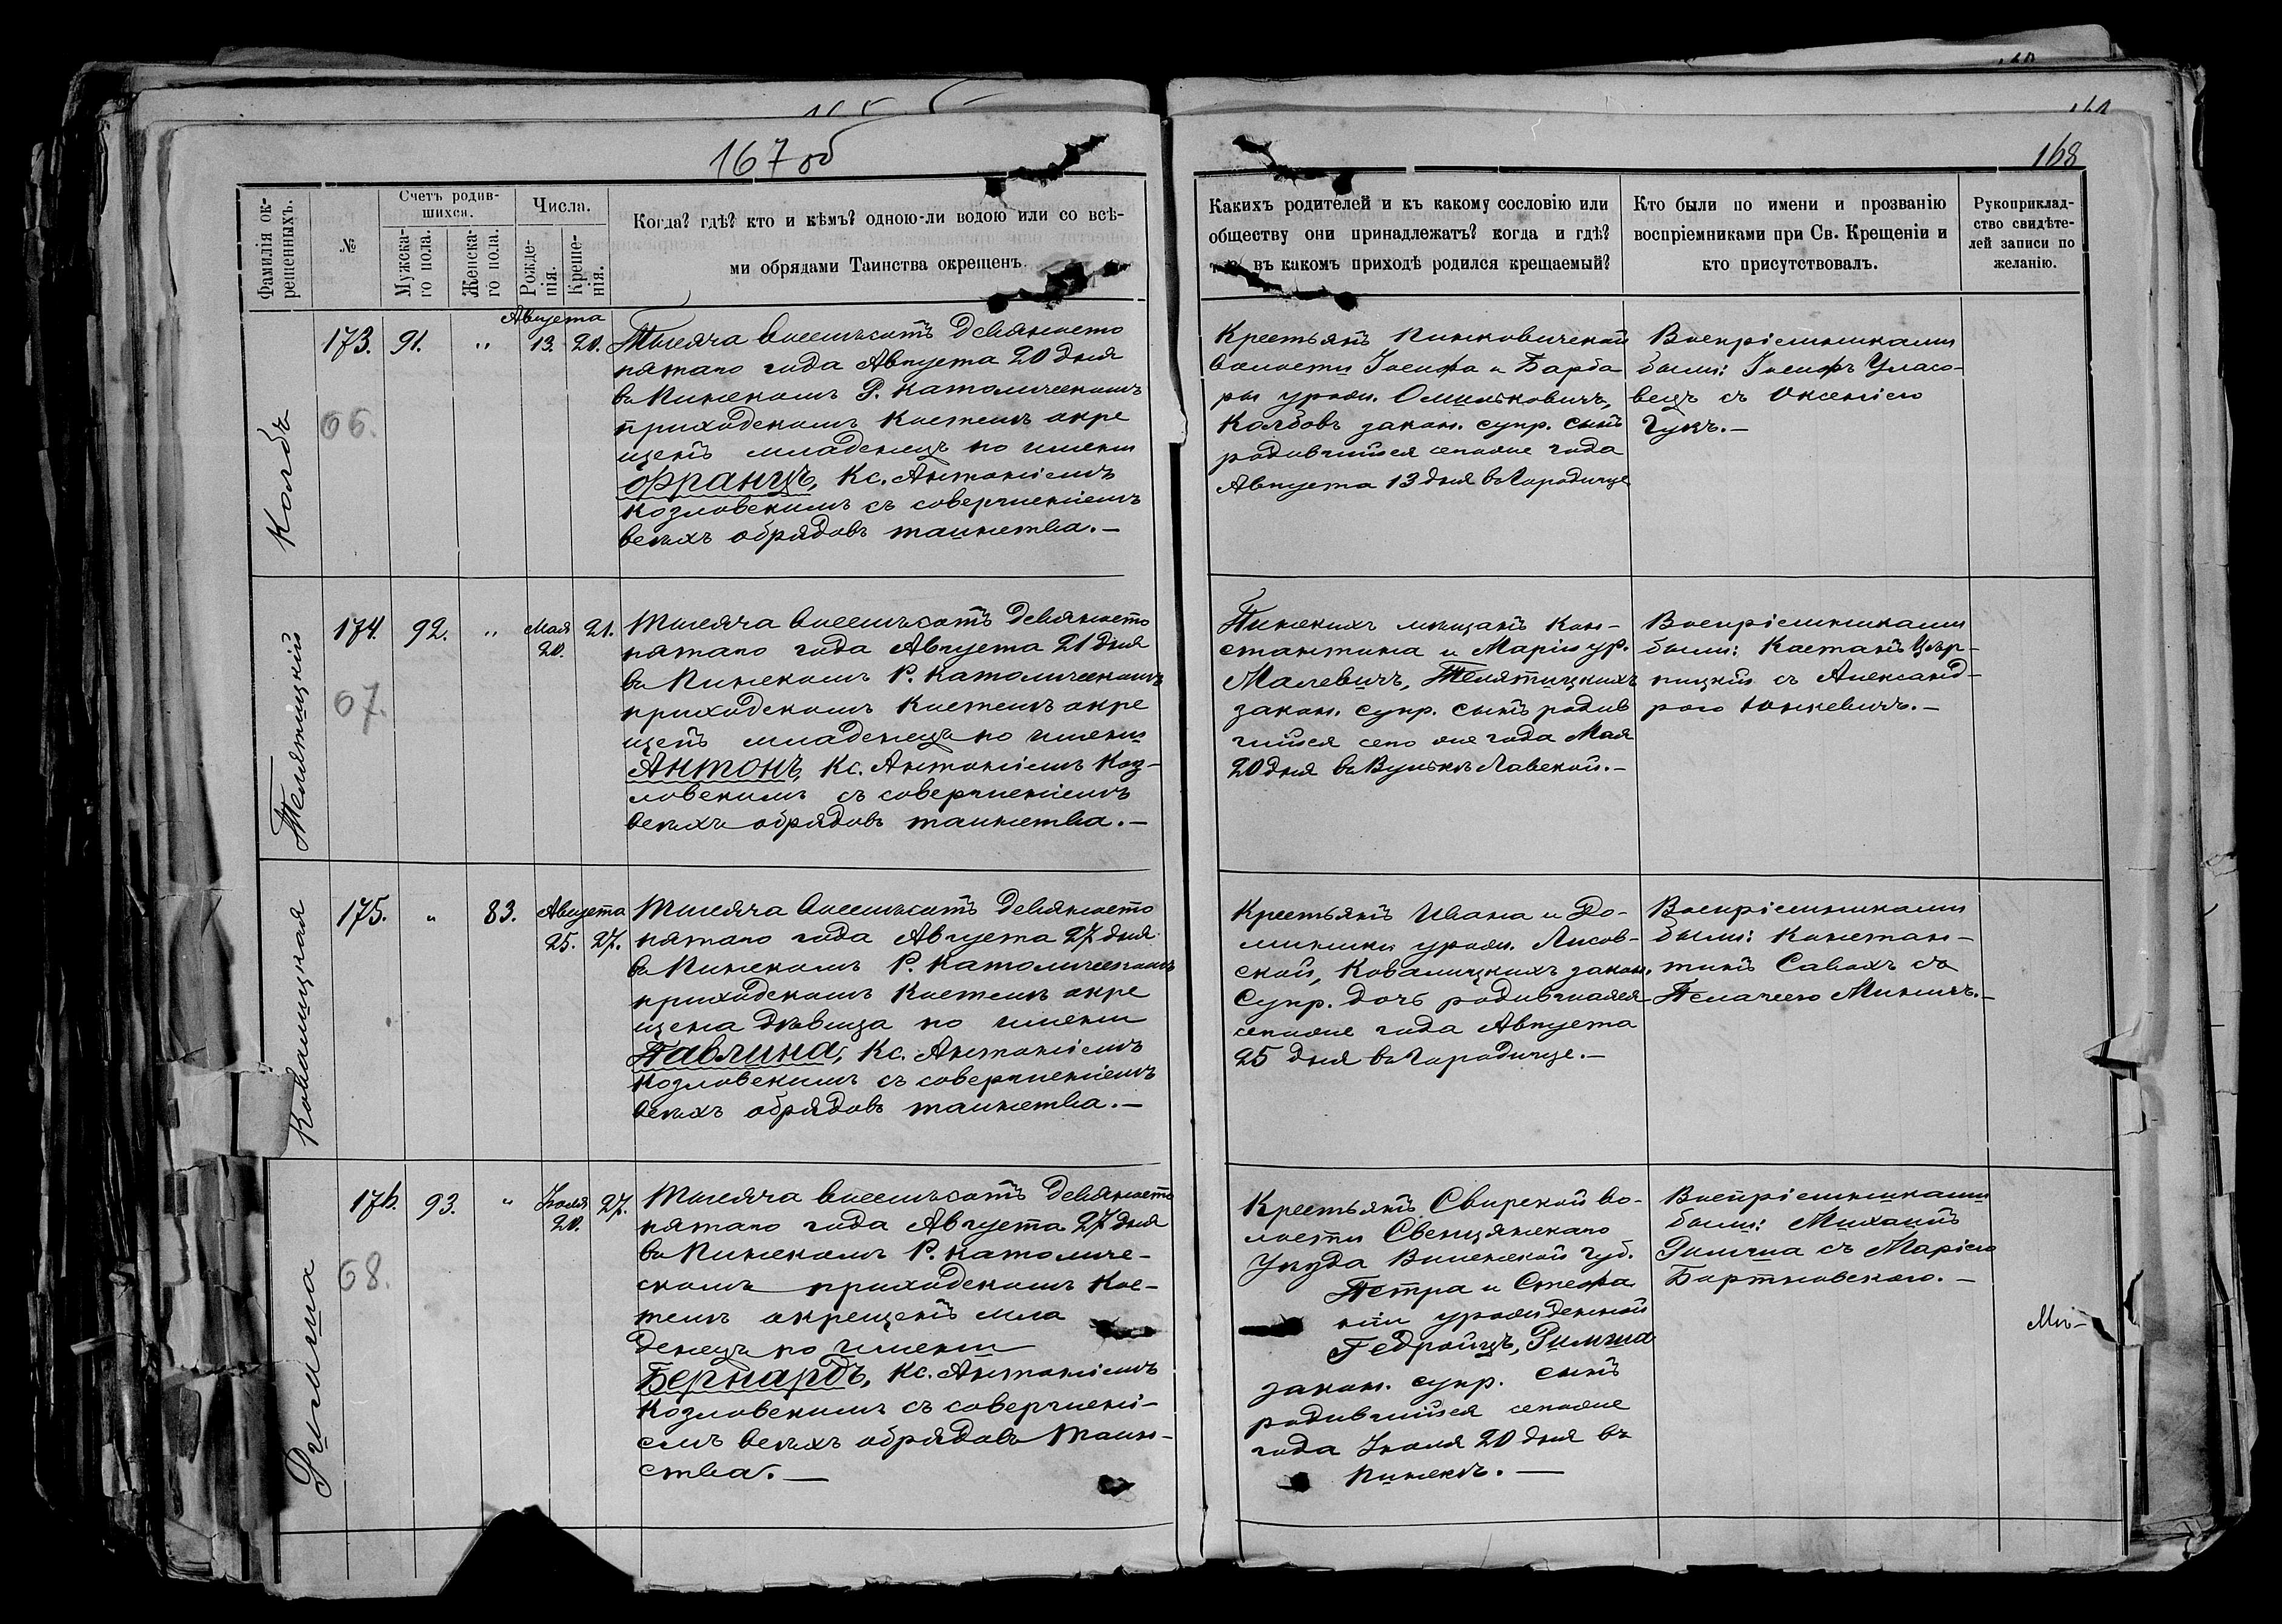 167 об
168
Фамилія ок-
рещенныхъ.
№
Счетъ родив-
шихся.
Мужска-
го пола.
Женска-
го пола.
Числа.
Рожде-
нія.
Креще-
нія.
Когда? гдѣ? кто и кѣмъ? одною-ли водою или со всѣ-
ми обрядами Таинства окрещенъ.
Какихъ родителей и къ какому сословію или
обществу они принадлежатъ? когда и гдѣ?
въ какомъ приходѣ родился крещаемый?
Кто были по имени и прозванію
воспріемниками при Св. Крещеніи и
кто присутствовалъ.
Рукоприклад-
ство свидѣте-
лей записи по
желанію.
Колбъ
173. 91. " Августа
13. 20.
66.
Тысяча восемьсотъ девяносто
пятаго года Августа 20 дня
въ Пинскомъ Р. Католическомъ
приходскомъ костелѣ окре
щенъ младенецъ по имени
Францъ, Кс. Антоніемъ
Козловскимъ съ совершеніемъ
всѣхъ обрядовъ таинства.—
Крестьянъ Пинковичской
волости Іосифа и Барба
ры урожд. Омильковичъ,
Колбовъ закон. супр. сынъ
родившійся сегоже года
Августа 13 дня въ Городище
Воспріемниками
были: Іосифъ Уласо-
вецъ съ Оксеніею
Гукъ.—
Телятицкій
174. 92. " Мая
20. 21.
67.
Тысяча восемьсотъ девяносто
пятаго года Августа 21 дня
въ Пинскомъ Р. Католическомъ
приходскомъ костелѣ окре
щенъ младенецъ по имени
Антонъ, Кс. Антоніемъ Коз-
ловскимъ съ совершеніемъ
всѣхъ обрядовъ таинства.—
Пинскихъ мѣщанъ Кон-
стантина и Маріи ур.
Малевичъ, Телятицкихъ
закон. супр. сынъ родив
шійся сего же года Мая
20 дня въ Вулькѣ Лавской.—
Воспріемниками
были: Каетанъ Цѣр-
пицкій съ Александ-
рою Юнкевичъ.—
Ковалицкая
175. " 83. Августа
25. 27.
Тысяча восемьсотъ девяносто
пятаго года Августа 27 дня
въ Пинскомъ Р. Католическомъ
приходскомъ костелѣ окре
щена дѣвица по имени
Павлина, Кс. Антоніемъ
Козловскимъ съ совершеніемъ
всѣхъ обрядовъ таинства.—
Крестьянъ Ивана и До-
миники урожд. Лисов-
ской, Ковалицкихъ закон.
супр. дочь родившаяся
сегоже года Августа
25 дня въ Городище.—
Воспріемниками
были: Констан-
тинъ Савохъ съ
Пелагеею Миничъ.—
Римша
176. 93. " Іюля
20. 27.
68.
Тысяча восемьсотъ девяносто
пятаго года Августа 27 дня
въ Пинскомъ Р. Католиче-
скомъ приходскомъ кос-
телѣ окрещенъ мла
денецъ по имени
Бернардъ, Кс. Антоніемъ
Козловскимъ съ совершені-
емъ всѣхъ обрядовъ таин-
ства.—
Крестьянъ Свирской во-
лости Свенцянскаго
уѣзда Виленской губ.
Петра и Стефа
ніи урожденной
Гедройцъ, Римша
закон. супр. сынъ
родившійся сегоже
года Іюля 20 дня въ
Пинскѣ.—
Воспріемниками
были: Михаилъ
Римша съ Маріею
Бортновскою.—